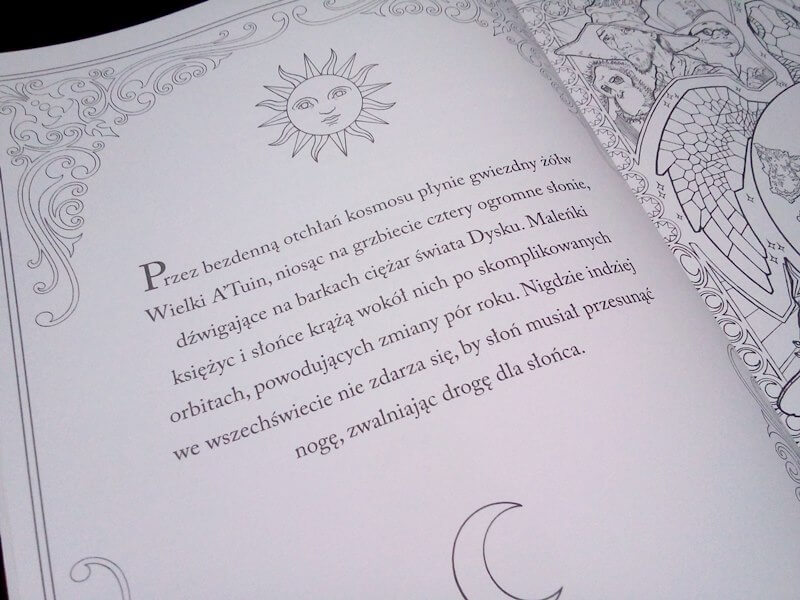 Przez bezdenną otchłań kosmosu płynie gwiezdny żółw
Wielki A'Tuin, niosąc na grzbiecie cztery ogromne słonie,
dźwigające na barkach ciężar świata Dysku. Maleńki
księżyc i słońce krążą wokół nich po skomplikowanych
orbitach, powodujących zmiany pór roku. Nigdzie indziej
we wszechświecie nie zdarza się, by słoń musiał przesunąć
nogę, zwalniając drogę dla słońca.